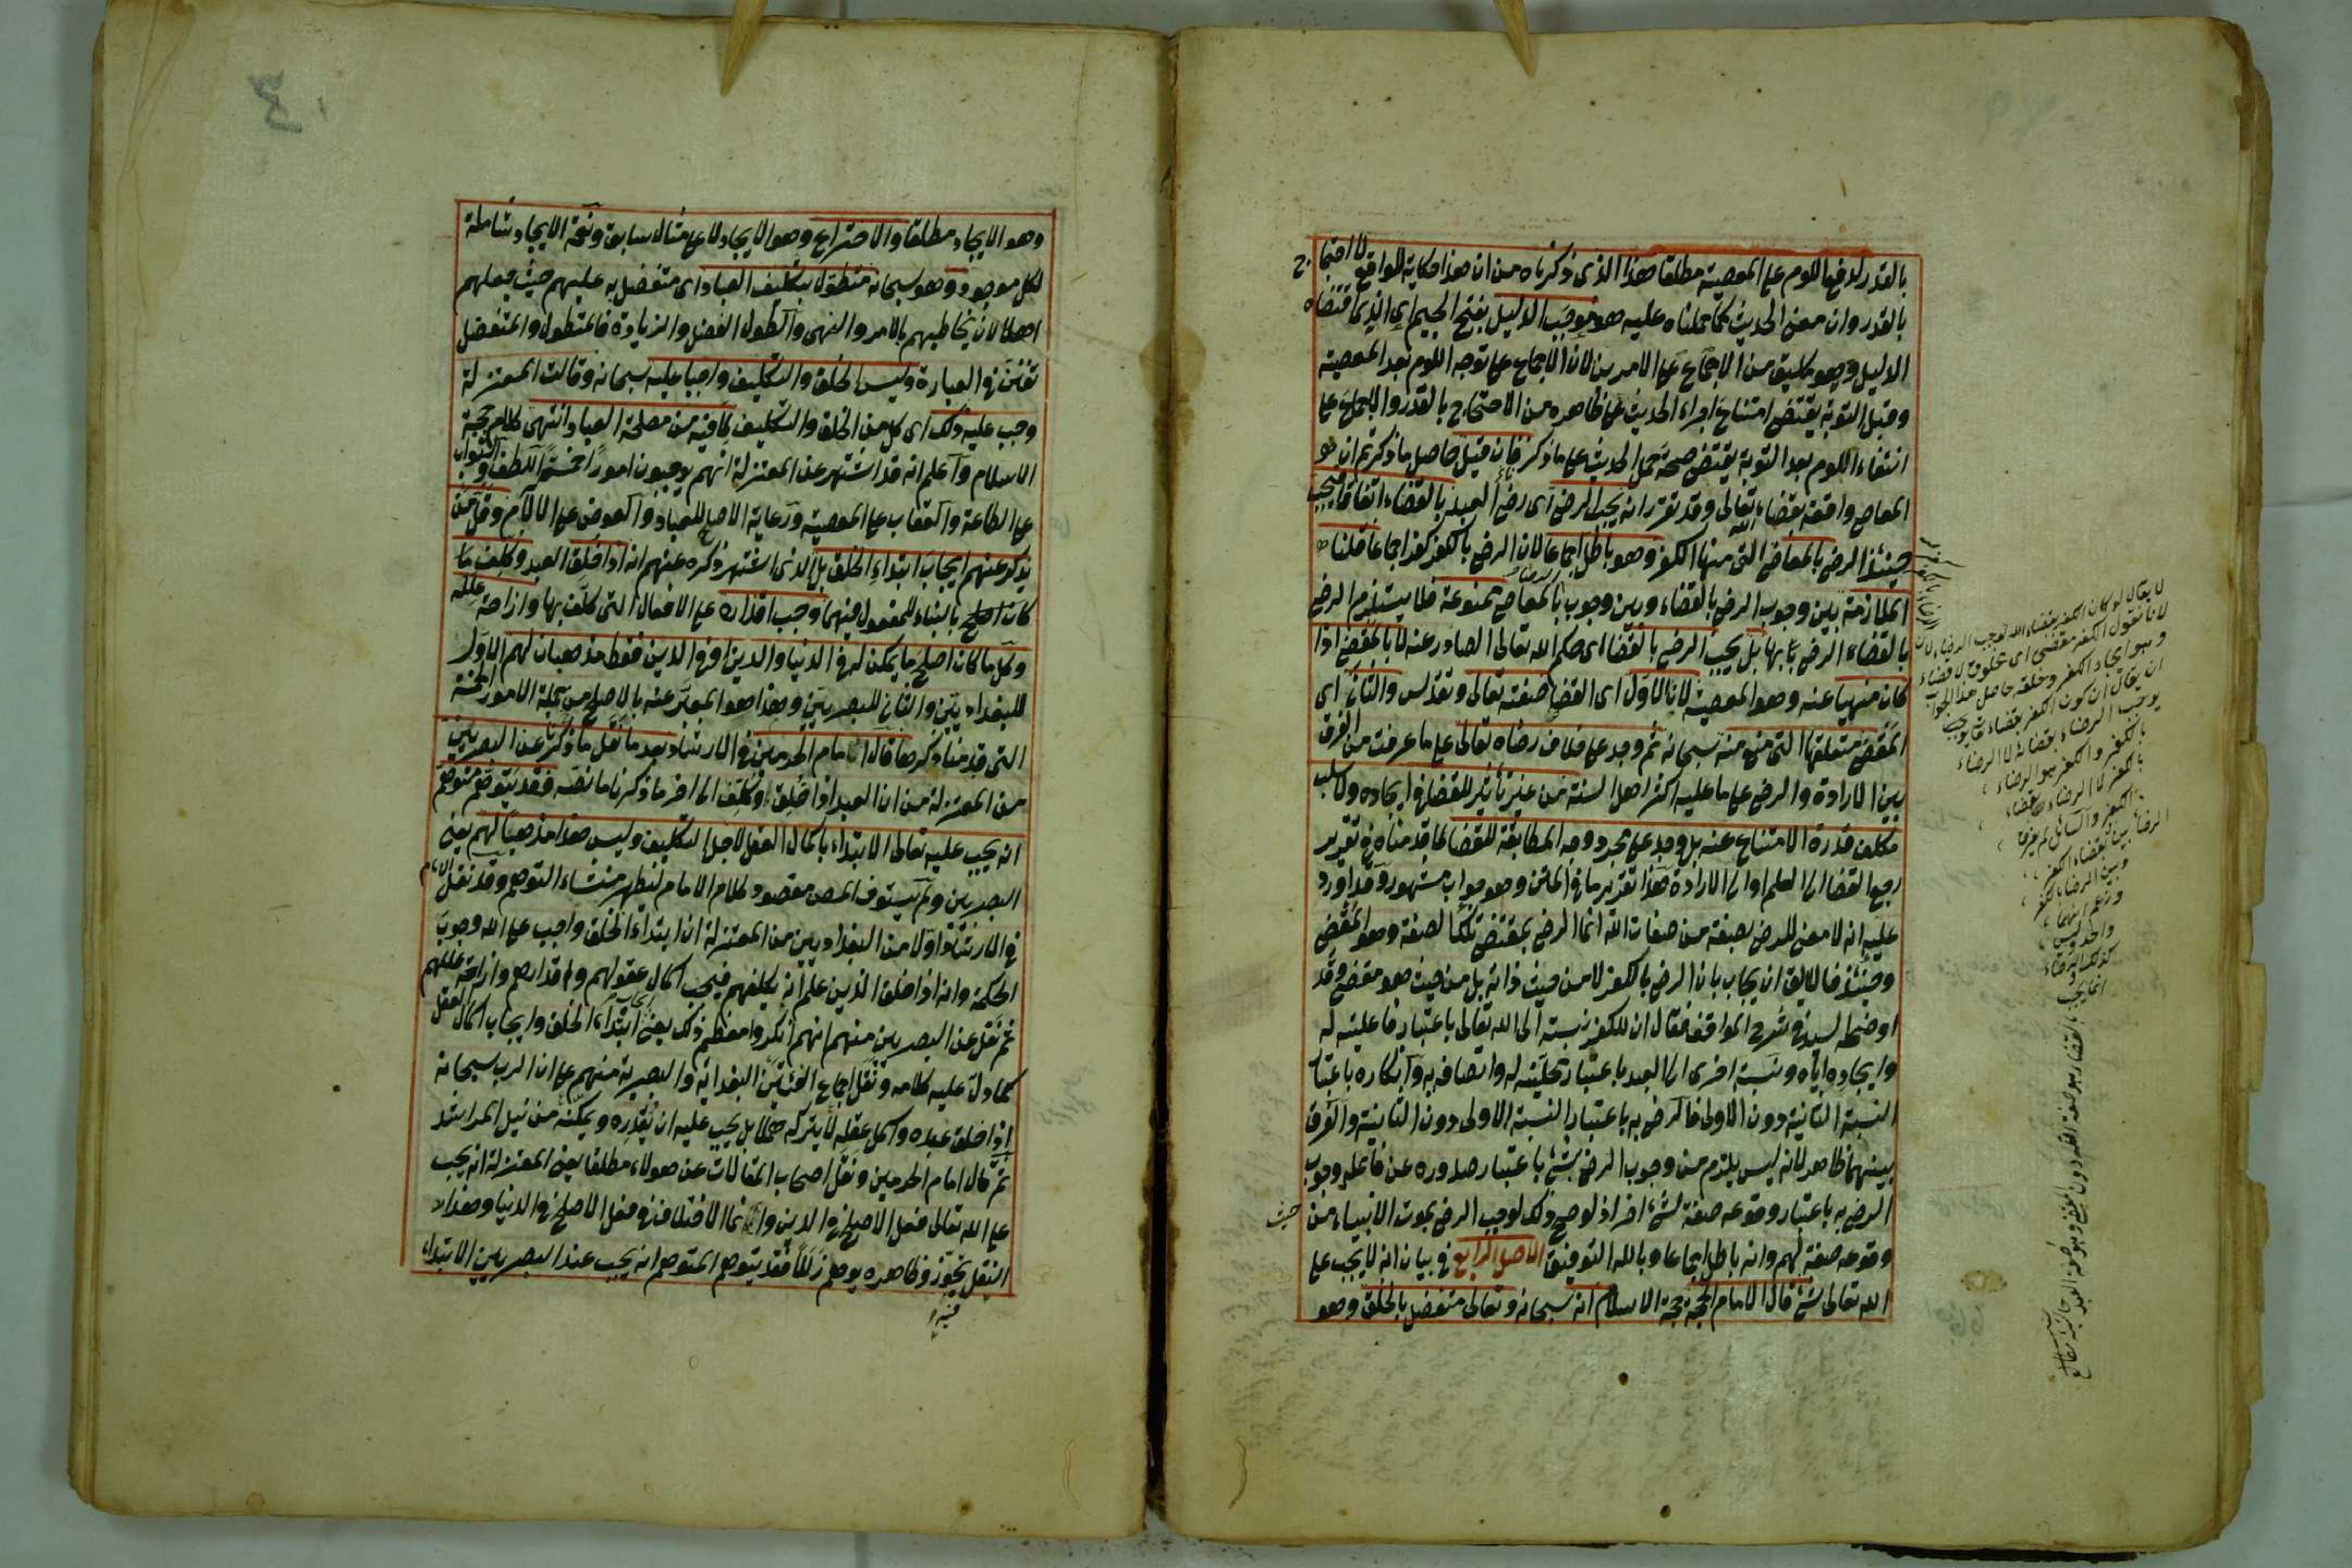 بالقدر لدفع اللوم على المعصية مطلقا هذا الذى ذكرناه من ان هذا حكاية للواقع لا احتجاج
بالقدر وان معنى الحديث كما حملناه عليه هو موجب الدليل بفتح الجيم اى الذى اقتضاه
الدليل وهو من الاجماع على الامرين لان الاجماع على توجه اللوم بعد المعصية
وقبل التوبة يقتضى امتناع اجراء الحديث على ظاهره من الاحتجاج بالقدر والاجماع على
انتفاء اللوم بعد التوبة يقتضى صحة حمل الحديث على ما ذكر فان قيل حاصل ما ذكرتم ان
المعاصى واقعة بقضاء الله تعالى وقد تقرر انه يجب الرضى اى رضى العبد بالقضاء اتفاقا فيجب
حينئذ الرضى بالمعاصى التى منها الكفر وهو باطل اجماعا لان الرضى بالكفر كفر اجماعا قلنا
الملازمة بين وجوب الرضى بالقضاء وبين وجوب الرضاء بالمعاصى ممنوعة فلا يستلزم الرضى
بالقضاء الرضى بها بل يجب الرضى بالقضا اى حكم الله تعالى الصادر عنه لا بالمقضى اذا
كان منهيا عنه وهو المعصية لان الاول اى القضا صفته تعالى وتقدس والثانى اى
المقضى متعلقها التى منع منه سبحانه ثم وجد على خلاف رضاه تعالى على ما عرفت من الفرق
بين الارادة والرضى على ما عليه اكثر اهل السنة من غير تأثير للقضا فى ايجاده ولا سلب
مكلف قدرة الامتناع عنه بل وجد على مجرد وجه المطابقة للقضا لما قدمناه فى تقرير
رجع القضا الى العلم او الى الارادة هذا تقرير ما فى المتن وهو جواب مشهور وقد اورد
عليه انه لا معنى للرضى بصفة من صفات الله انما الرضى بمقتضى تلك الصفة وهو المقضى
وحينئذ فاللائق ان يجاب بان الرضى بالكفر لا من حيث ذاته بل من حيث هو مقضى وقد
اوضحه السيد فى شرح المواقف فقال ان للكفر نسبة الى الله تعالى باعتبار فاعليته له
وايجاده اياه ونسبة اخرى الى العبد باعتبار محليته له واتصافه به وانكاره باعتبار
النسبة الثانية دون الاولى فالرضى به باعتبار النسبة الاولى دون الثانية والفرق
بينهما ظاهر لانه ليس يلزم من وجوب الرضى بشئ باعتبار صدوره عن فاعله وجوب
الرضى به باعتبار وقوعه صفة لشئ اخر اذ لو صح ذلك لوجب الرضى بموت الانبياء من حيث
وقوعه صفة لهم وانه باطل اجماعا وبالله التوفيق الاصل الرابع فى بيان انه لا يجب على
الله تعالى شئ قال الامام الحجة حجة الاسلام انه سبحانه وتعالى متفضل بالخلق وهو
لا يقال لو كان الكفر بقضاء الله لوجب الرضاء لان
لانا نقول الكفر مقضى اى مخلوق لا قضاء
وهو ايجاد الكفر وخلقه حاصل هذا الجواب
ان يقال ان كون الكفر بقضاء
يوجب الرضاء بقضائه لا الرضاء
بالكفر والكفر هو الرضاء
بالكفر لا الرضاء بقضاء
الكفر والسائل لم يفرق
الرضا بين بقضاء الكفر
وبين الرضا بالكفر
وزعم انهما
واحد وليس
كذلك
انما يجب
بالقضاء وهو صفة الله دون المقضى وهو صفة العبد
وهو الايجاد مطلقا والاختراع وهو الايجاد لا على مثال سابق ونعمة الايجاد شاملة
لكل موجود وهو سبحانه متطول بتكليف العباد اى متفضل به عليهم حيث جعلهم
اهلا لان يخاطبهم بالامر والنهى والطول الفضل والزيادة فالمتطول والمتفضل
تفنن فى العبارة وليس الخلق والتكليف واجبا عليه سبحانه وقالت المعتزلة
وجب عليه ذلك اى كل من الخلق والتكليف لما فيه من مصلحة العباد انتهى كلام حجة
الاسلام واعلم انه قد اشتهر عن المعتزلة انهم يوجبون امورا خمسة اللطف والثواب
على الطاعة والعقاب على المعصية ورعاية الاصلح للعباد والعوض على الالام وقل من
يذكر عنهم ايجاب ابتداء الخلق بل الذى اشتهر ذكره عنهم انه اذا خلق العبد وكلف ما
كان اصلح بالبناء للمفعول فيهما وجب اقداره على الافعال التى كلف بها وازاحة علله
وكل ما كان اصلح ما يمكن له فى الدنيا والدين او فى الدين فقط مذهبان لهم الاول
للبغداديين والثانى للبصريين وهذا هو المعبر عنه بالاصلح من جملة الامور الخمسة
التى قدمنا ذكرها قال امام الحرمين فى الارشاد بعد ما نقل ما ذكرنا عن البصريين
من المعتزلة من ان العبد اذا خلق وكلف الى اخر ما ذكرنا ما نصه فقد يتوهم متوهم
انه يجب عليه تعالى الابتداء باكمال العقل لاجل التكليف وليس هذا مذهبا لهم يعنى
البصريين ولم يستوف المص مقصود كلام الامام ليظهر منشاء التوهم وقد نقل الامام
فى الارشاد اولا من البغداديين من المعتزلة ان ابتداء الخلق واجب على الله وجوب
الحكمة وانه اذا خلق الذين علم انه يكلفهم فيجب اكمال عقولهم واقدارهم وازاحة عللهم
ثم نقل عن البصريين منهم انهم انكروا معظم ذلك يعنى ايجاب ابتداء الخلق وايجاب اكمال العقل
كما دل عليه كلامه ونقل اجماع الفئتين البغدادية والبصرية منهم على ان الرب سبحانه
اذا خلق عبده واكمل عقله لا يتركه هملا بل يجب عليه ان يقدره ويمكنه من نيل المراشد
ثم قال امام الحرمين ونقل اصحاب المقالات عن هولاء مطلقا يعنى المعتزلة انه يجب
على الله تعالى فعل الاصلح فى الدين وانما الاختلاف فى فعل الاصلح فى الدنيا وهذا
النقل تجوز وظاهره يوهم زللا فقد يتوهم المتوهم انه يجب عند البصريين الابتداء